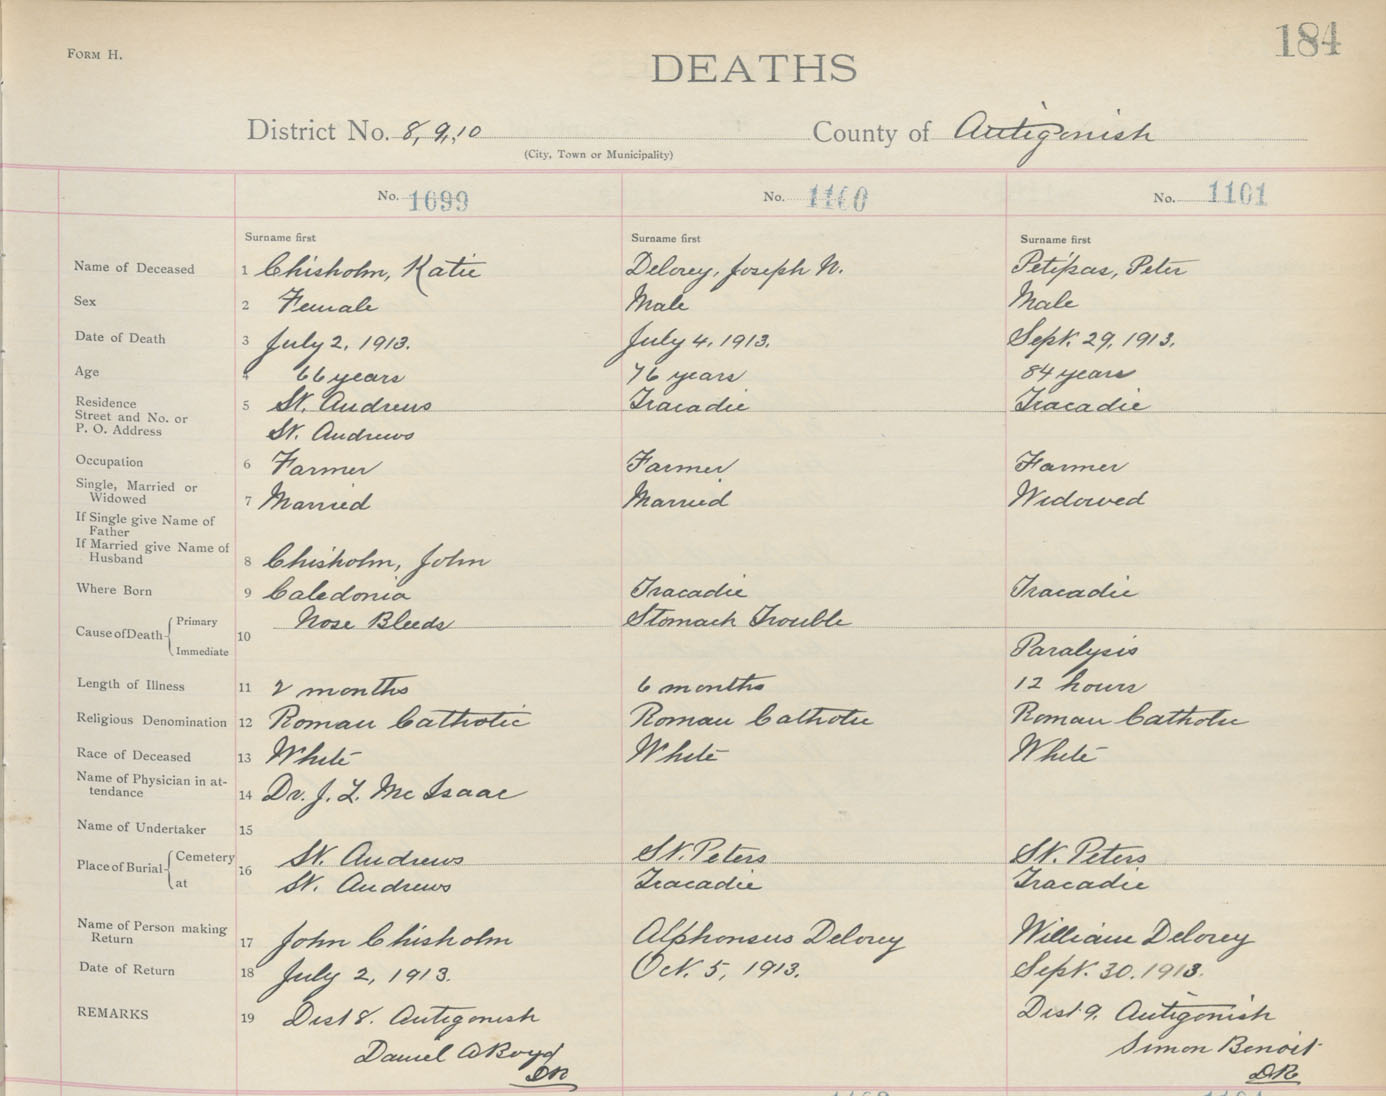 FORM H.
184
DEATHS
District No. 8, 9, 10
County of Antigonish
(City, Town or Municipality)
No. 1099
No. 1100
No. 1101
Surname first
Surname first
Surname first
Name of Deceased 1 Chisholm, Katie Delorey, Joseph N. Petipas, Peter
Sex 2 Female Male Male
Date of Death 3 July 2, 1913. July 4, 1913. Sept. 29, 1913.
Age 4 66 years 76 years 84 years
Residence 5 St. Andrews Tracadie Tracadie
Street and No. or
P. O. Address St. Andrews
Occupation 6 Farmer Farmer Farmer
Single, Married or
Widowed 7 Married Married Widowed
If Single give Name of
Father
If Married give Name of
Husband 8 Chisholm, John
Where Born 9 Caledonia Tracadie Tracadie
Cause of Death Primary 10 Nose Bleeds Stomach Trouble
Immediate Paralysis
Length of Illness 11 2 months 6 months 12 hours
Religious Denomination 12 Roman Catholic Roman Catholic Roman Catholic
Race of Deceased 13 White White White
Name of Physician in at-
tendance 14 Dr. J. L. Mc Isaac
Name of Undertaker 15
Place of Burial Cemetery 16 St. Andrews St. Peters St. Peters
at St. Andrews Tracadie Tracadie
Name of Person making
Return 17 John Chisholm Alphonsus Delorey William Delorey
Date of Return 18 July 2, 1913. Oct. 5, 1913. Sept. 30. 1913.
REMARKS 19 Dist 8. Antigonish Dist 9. Antigonish
Daniel A Boyd Simon Benoit
DR DR